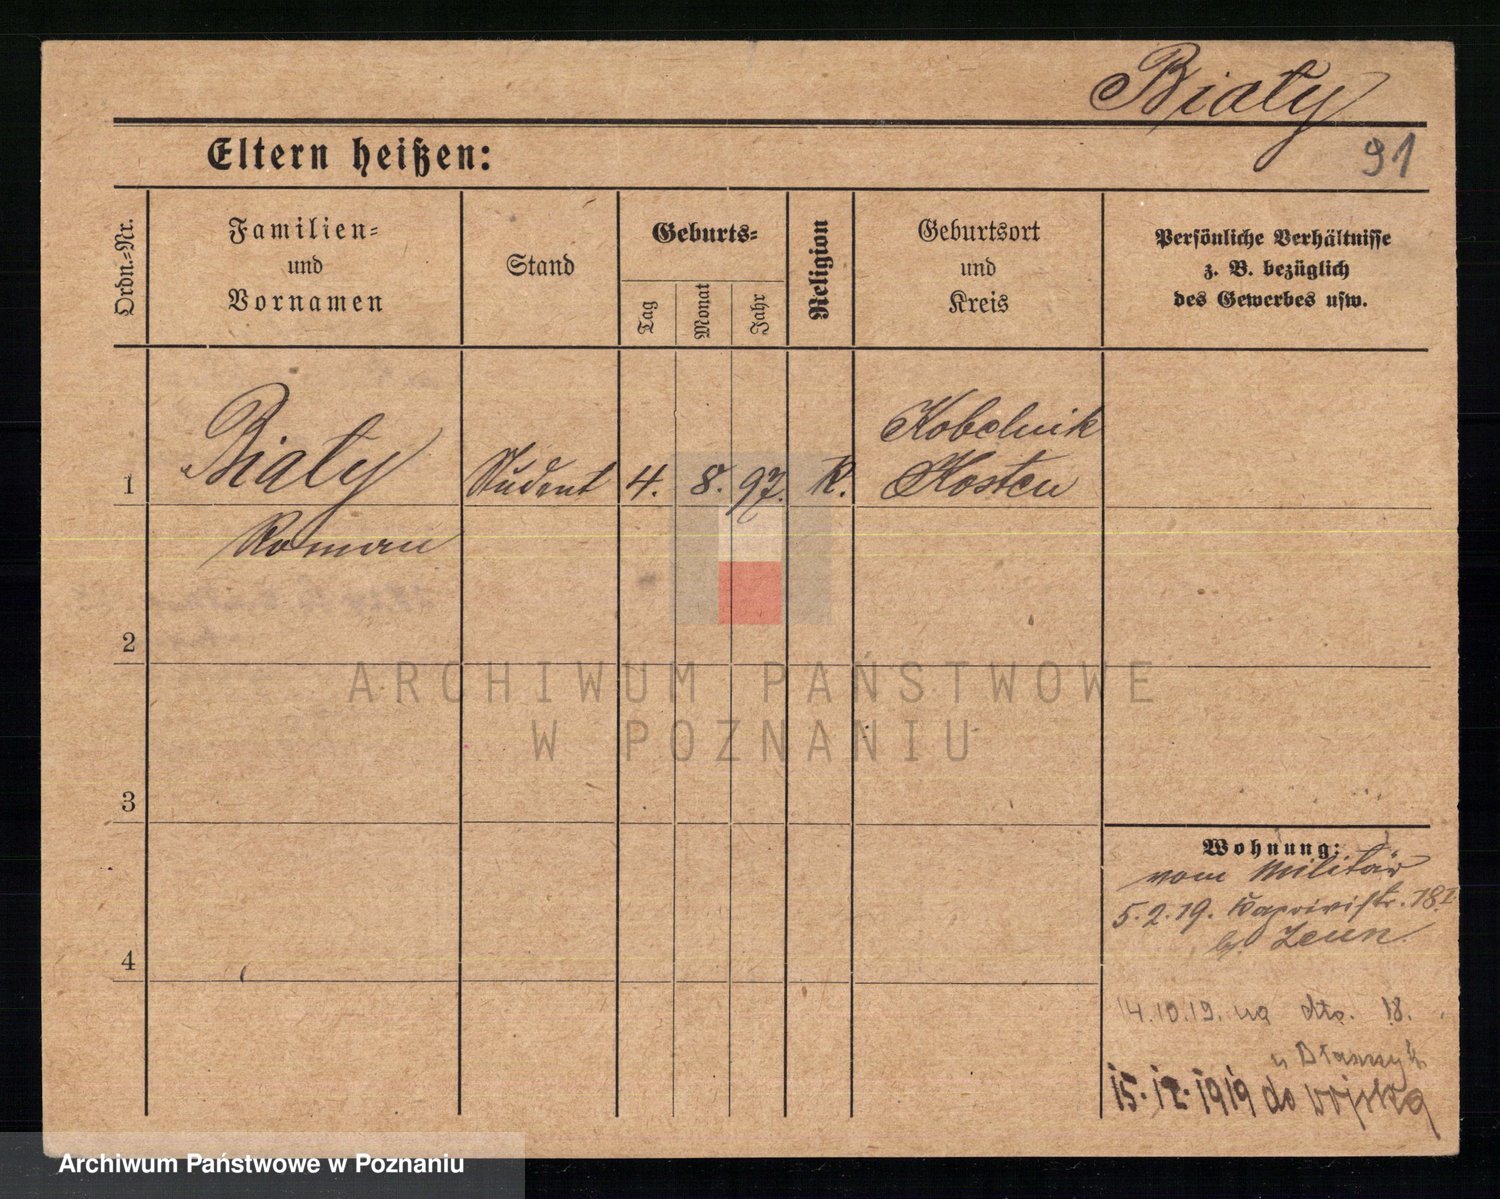 Biały
91
Eltern heißen:
Ordn.-Nr.
Familien-
und
Vornamen
Stand
Geburts-
Tag
Monat
Jahr
Religion
Geburtsort
und
Kreis
Persönliche Verhältnisse
z. B. bezüglich
des Gewerbes usw.
1
Biały
Roman
Student
4.
8.
97.
K.
Kobelnik
Kosten
2
3
4
ARCHIWUM PAŃSTWOWE
W POZNANIU
Wohnung:
vom Militär
5.2.19. Caprivistr. 18 I
b. Zeun
14.10.19. na dto. 18.
u
15.12.1919 do wojska
Archiwum Państwowe w Poznaniu